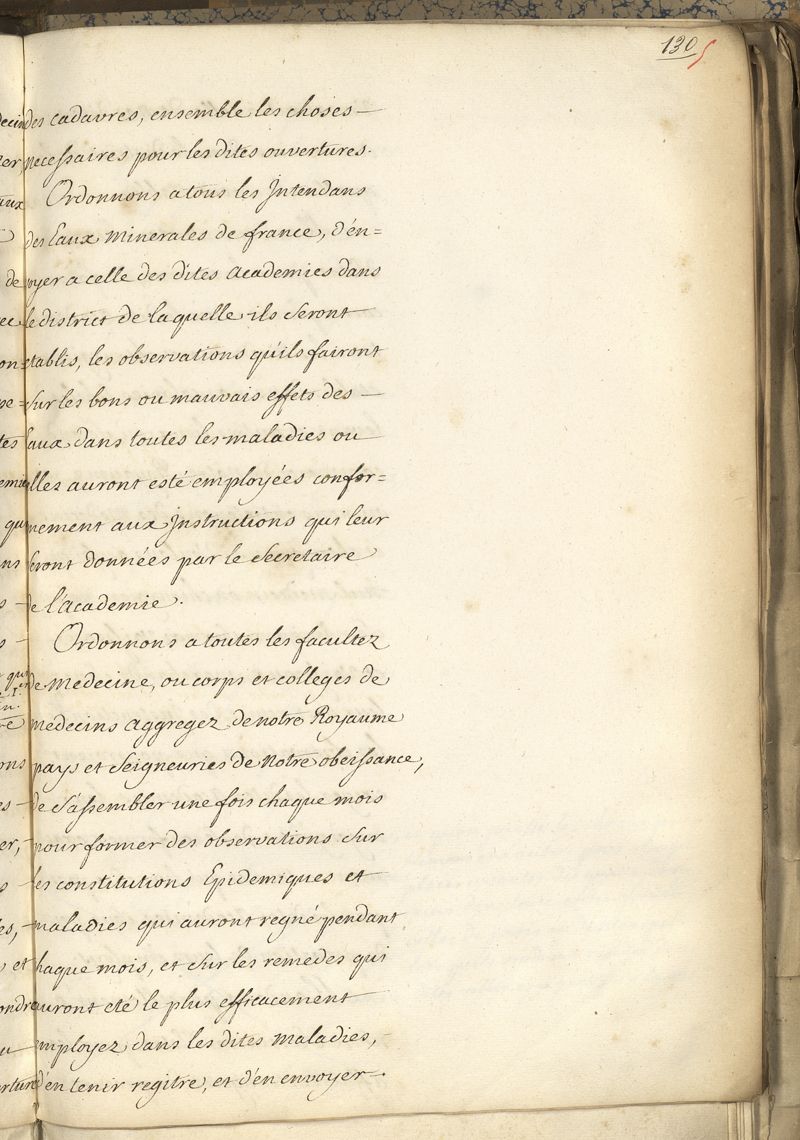 130
des cadavres, ensemble les choses —
necessaires pour les dites ouvertures.
Ordonnons a tous les Intendans
des Eaux Minerales de france, d'én=
voyer a celle des dites Academies dans
le district de laquelle ils seront
etablis, les observations qu'ils fairont
sur les bons ou mauvais effets des —
Eaux dans toutes les maladies ou
elles auront esté employées confor=
mement aux Instructions qui leur
seront données par le Secretaire
de l'Academie.
Ordonnons a toutes les facultez
de Medecine, ou corps et colleges de
Medecins Aggregez de notre Royaume
pays et Seigneuries de Notre obeissance,
de s'assembler une fois chaque mois
pour former des observations sur
les constitutions Epidemiques et
maladies qui auront regné pendant
chaque mois, et sur les remedes qui
auront eté le plus efficacement
employez dans les dites Maladies, -
d'en tenir regitre, et d'en envoyer